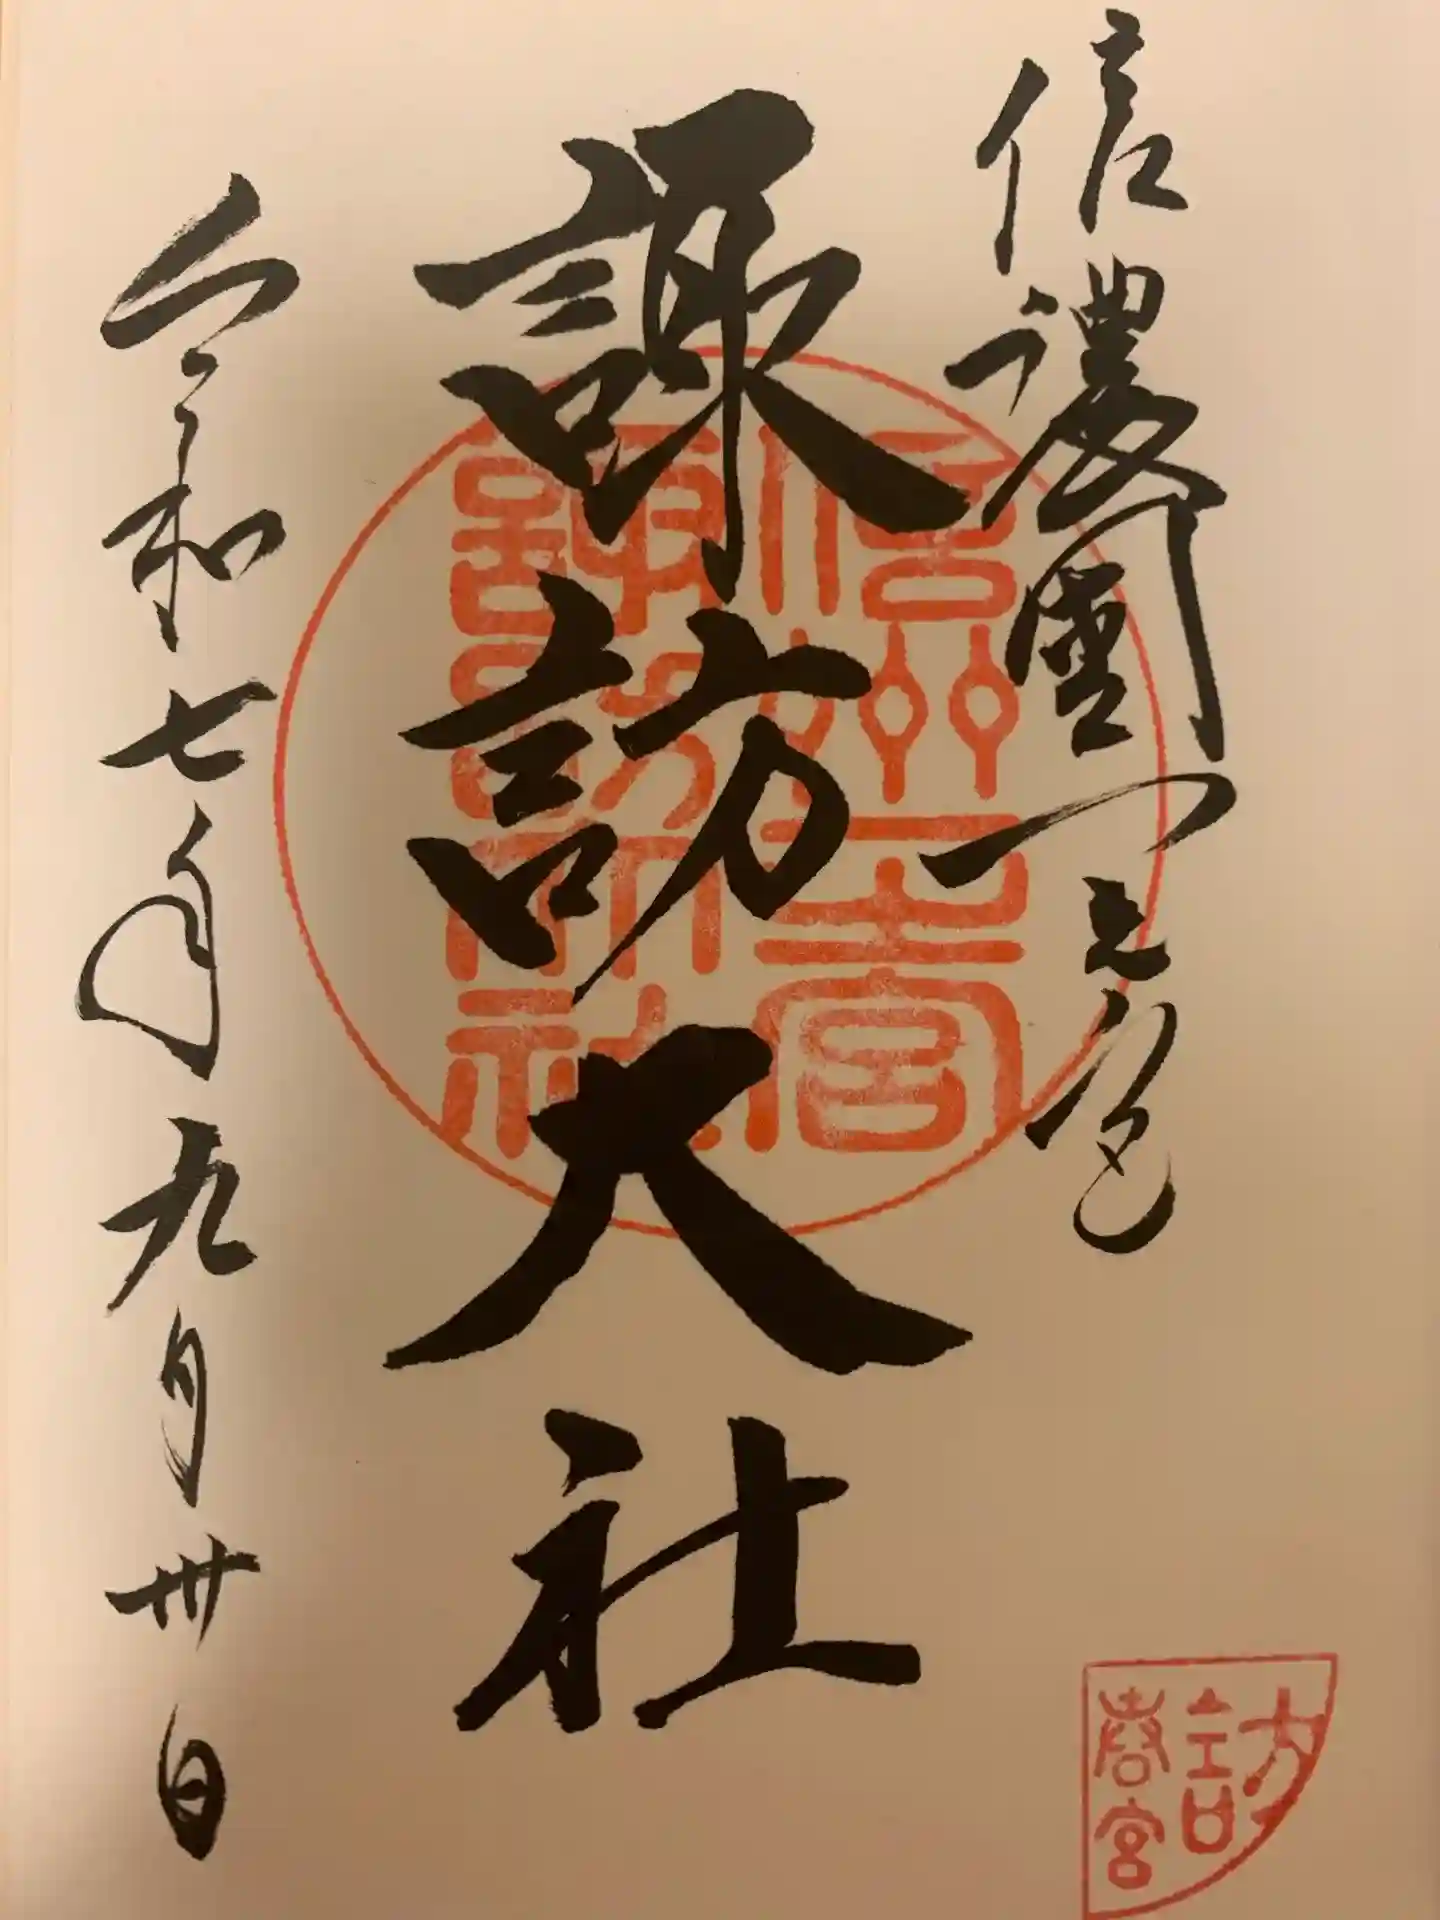 信濃國一之宮
諏訪大社
令和七年九月卅日
信州一之宮
諏訪大社
訪
春宮